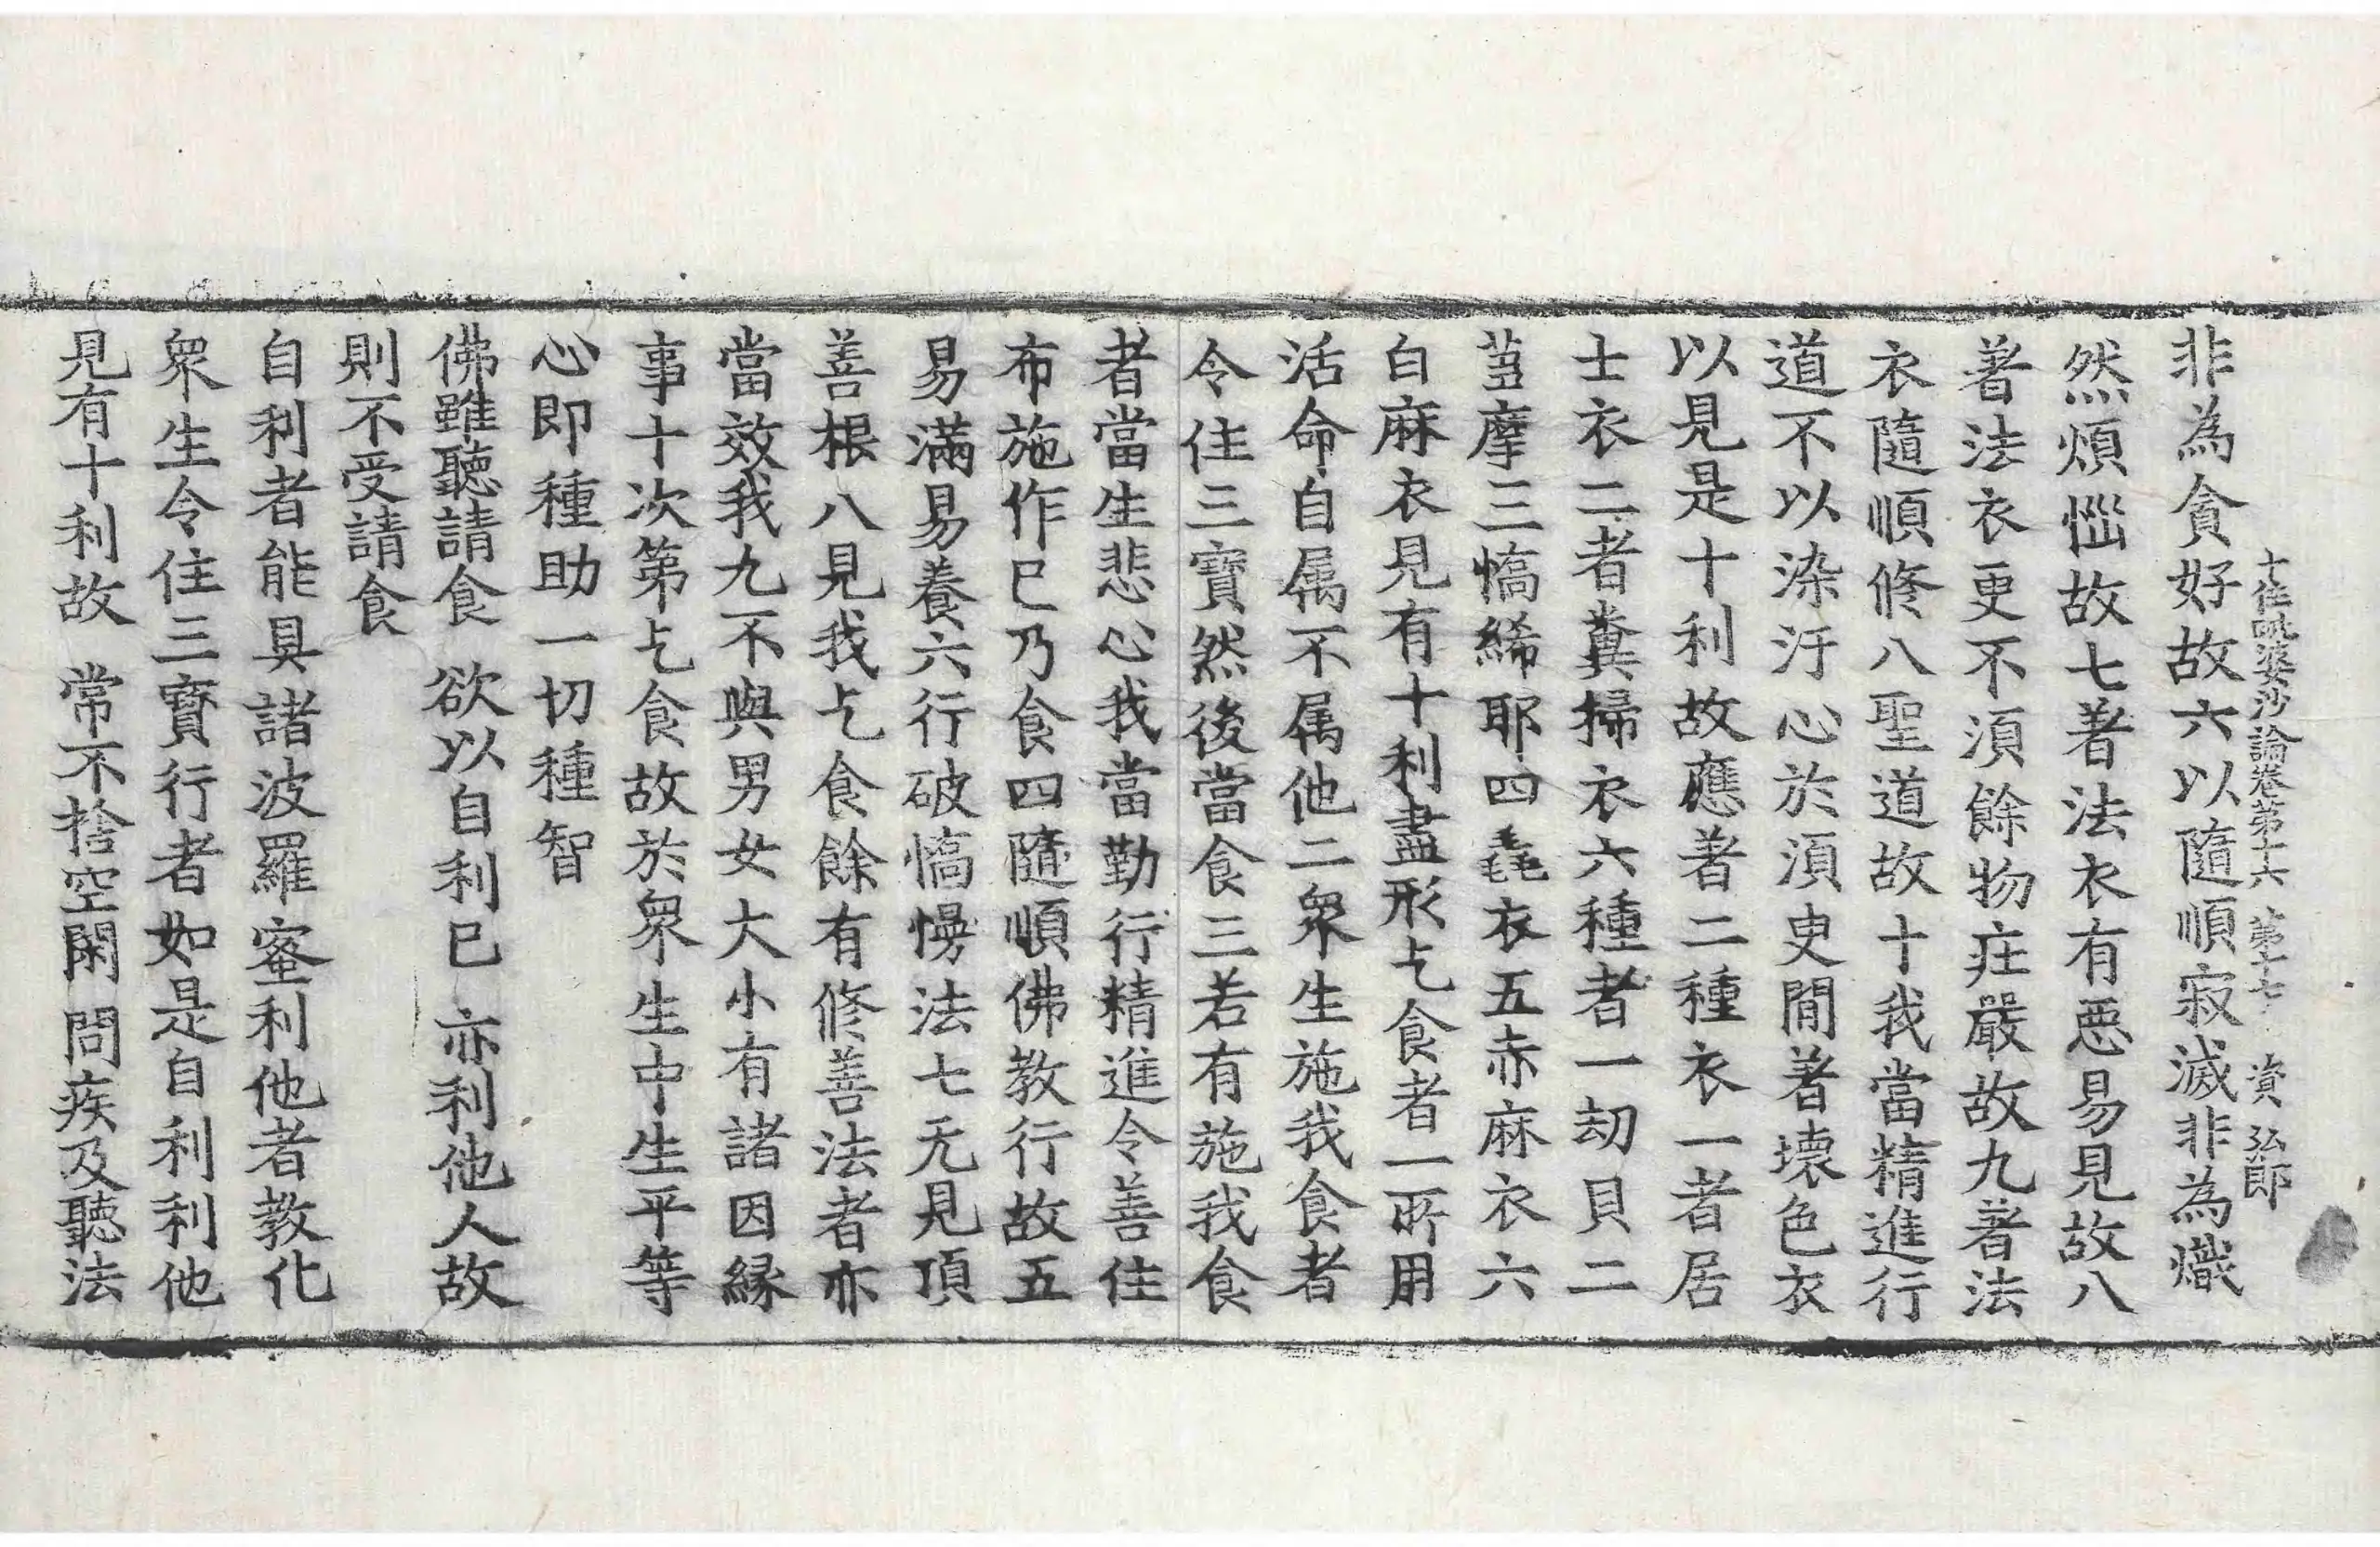 十住毗婆沙論卷第十六 第十七 資 弘郎
非為貪好故六以隨順寂滅非為熾
然煩惱故七著法衣有惡易見故八
著法衣更不須餘物莊嚴故九著法
衣隨順修八聖道故十我當精進行
道不以染汙心於須臾間著壞色衣
以見是十利故應著二種衣一者居
士衣二者糞掃衣六種者一刼貝二
芻摩三憍絺耶四毳衣五赤麻衣六
白麻衣見有十利盡形乞食者一所用
活命自属不属他二衆生施我食者
令住三寶然後當食三若有施我食
者當生悲心我當勤行精進令善住
布施作已乃食四隨順佛教行故五
易滿易養六行破憍慢法七无見頂
善根八見我乞食餘有修善法者亦
當效我九不與男女大小有諸因緣
事十次第乞食故於衆生中生平等
心即種助一切種智
佛雖聽請食 欲以自利已 亦利他人故
則不受請食
自利者能具諸波羅蜜利他者教化
衆生令住三寶行者如是自利利他
見有十利故 常不捨空閑 問疾及聽法